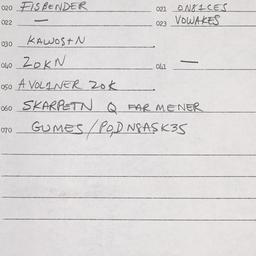 020 FISBENDER 021 ON81CES
022 — 023 VOWAKES
030 KAWOStN
040 ZOKN 041 —
050 AVOLINER ZOK
060 SKARPETN Q FAR MENER
070 GUMES/PQDN8ASK35